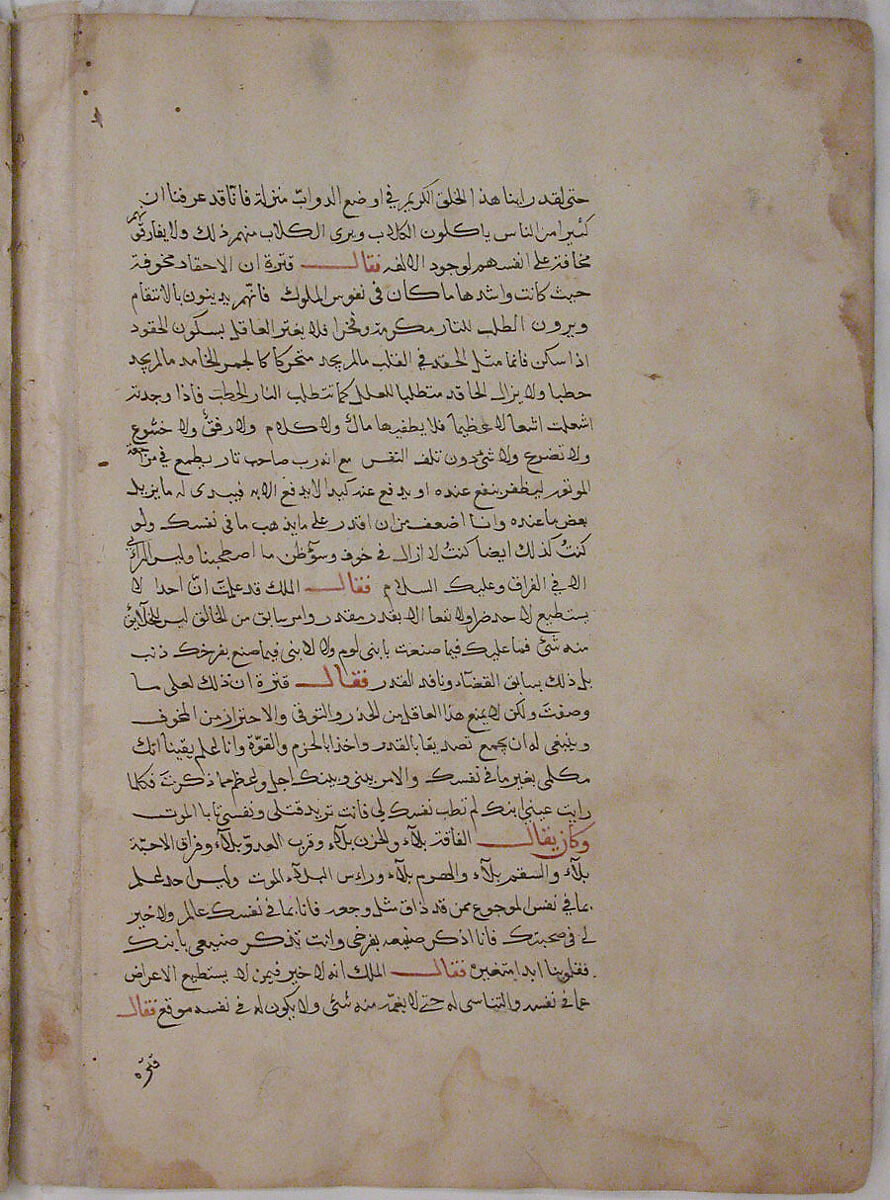 حتى لقد راينا هذا الخلق الكريم في اوضع الدوابّ منزلة فانّا قد عرفنا ان
كثيرا من الناس ياكلون الكلاب ويرى الكلاب منهم ذلك ولا يفارقونهم
مخافة على انفسهم لوجود الالفة فقالـــ قنزة ان الاحقاد مخوفة
حيث كانت واشدها ما كان في نفوس الملوك فانّهم يدينون بالانتقام
ويرون الطلب للثار مكرمة وفخرا فلا يغتر العاقل بسكون الحقود
اذا سكن فانما مثل الحقد في القلب مالم يجد متحركا كالجمر الخامد مالم يجد
حطبا ولا يزال الحاقد متطلبا للعلل كما تتطلب النار الحطب فاذا وجدته
اشعلت اشعالا عظيما فلا يطفيها ماءٌ ولا كلام ولا رفق ولا خشوع
ولا تضرع ولا شئ دون تلف النفس مع انه رب صاحب ثار يطمع في مراجعة
الموتور ليظفر بنفع عنده او يدفع عنه كيدا لا يدفع الا به فيبدى له ما يزيل
بعض ما عنده وانا اضعف من ان اقدر على ما يذهب ما في نفسك ولو
كنتُ كذلك ايضا كنتُ لا ازال في خوف وسؤ ظن ما اصطحبنا وليس الرأى
الا في الفراق وعليك السلام فقالـــ الملك قد علمت انّ احدا لا
يستطيع لاحد ضرا ولا نفعا الا بقدر مقدر وامر سابق من الخالق ليس للخلائق
منه شئ فما عليك فيما صنعت بابنى لوم ولا لابنى فيما صنع بفرخك ذنب
بل ذلك بسابق القضاء ونافد القدر فقالـــ قنزة ان ذلك لعلى ما
وصفت ولكن لا يمنع هذا العاقل من الحذر والتوقى والاحتراز من المخوف
وينبغى له ان يجمع تصديقا بالقدر واخذا بالحزم والقوّة وانا اعلم يقينا انك
تكلمنى بغير ما في نفسك والامر بينى وبينك اجل واعظم مما ذكرت فكلما
رايت عينى ابنك لم تطب نفسك لى فانت تريد قتلى ونفسى تابا الموت
وكان يقالـــ الفاقة بلاء والحزن بلاء وقرب العدوّ بلاء وفراق الاحبّة
بلاء والسقم بلاء والهرم بلاء وراس البلاء الموت وليس احد اعلم
بما في نفس الموجوع ممن قد ذاق مثل وجعه فانا بما في نفسك عالم ولا خير
لى في صحبتك فانا اذكر صنيعه بفرخى وانت تذكر صنيعى بابنك
فقلوبنا ابدا متغيرة فقالـــ الملك انه لا خير فيمن لا يستطيع الاعراض
عما في نفسه والتناسى له حتى لا يغمّر منه شئى ولا يكون له في نفسه موقع فقالـ
قنزه